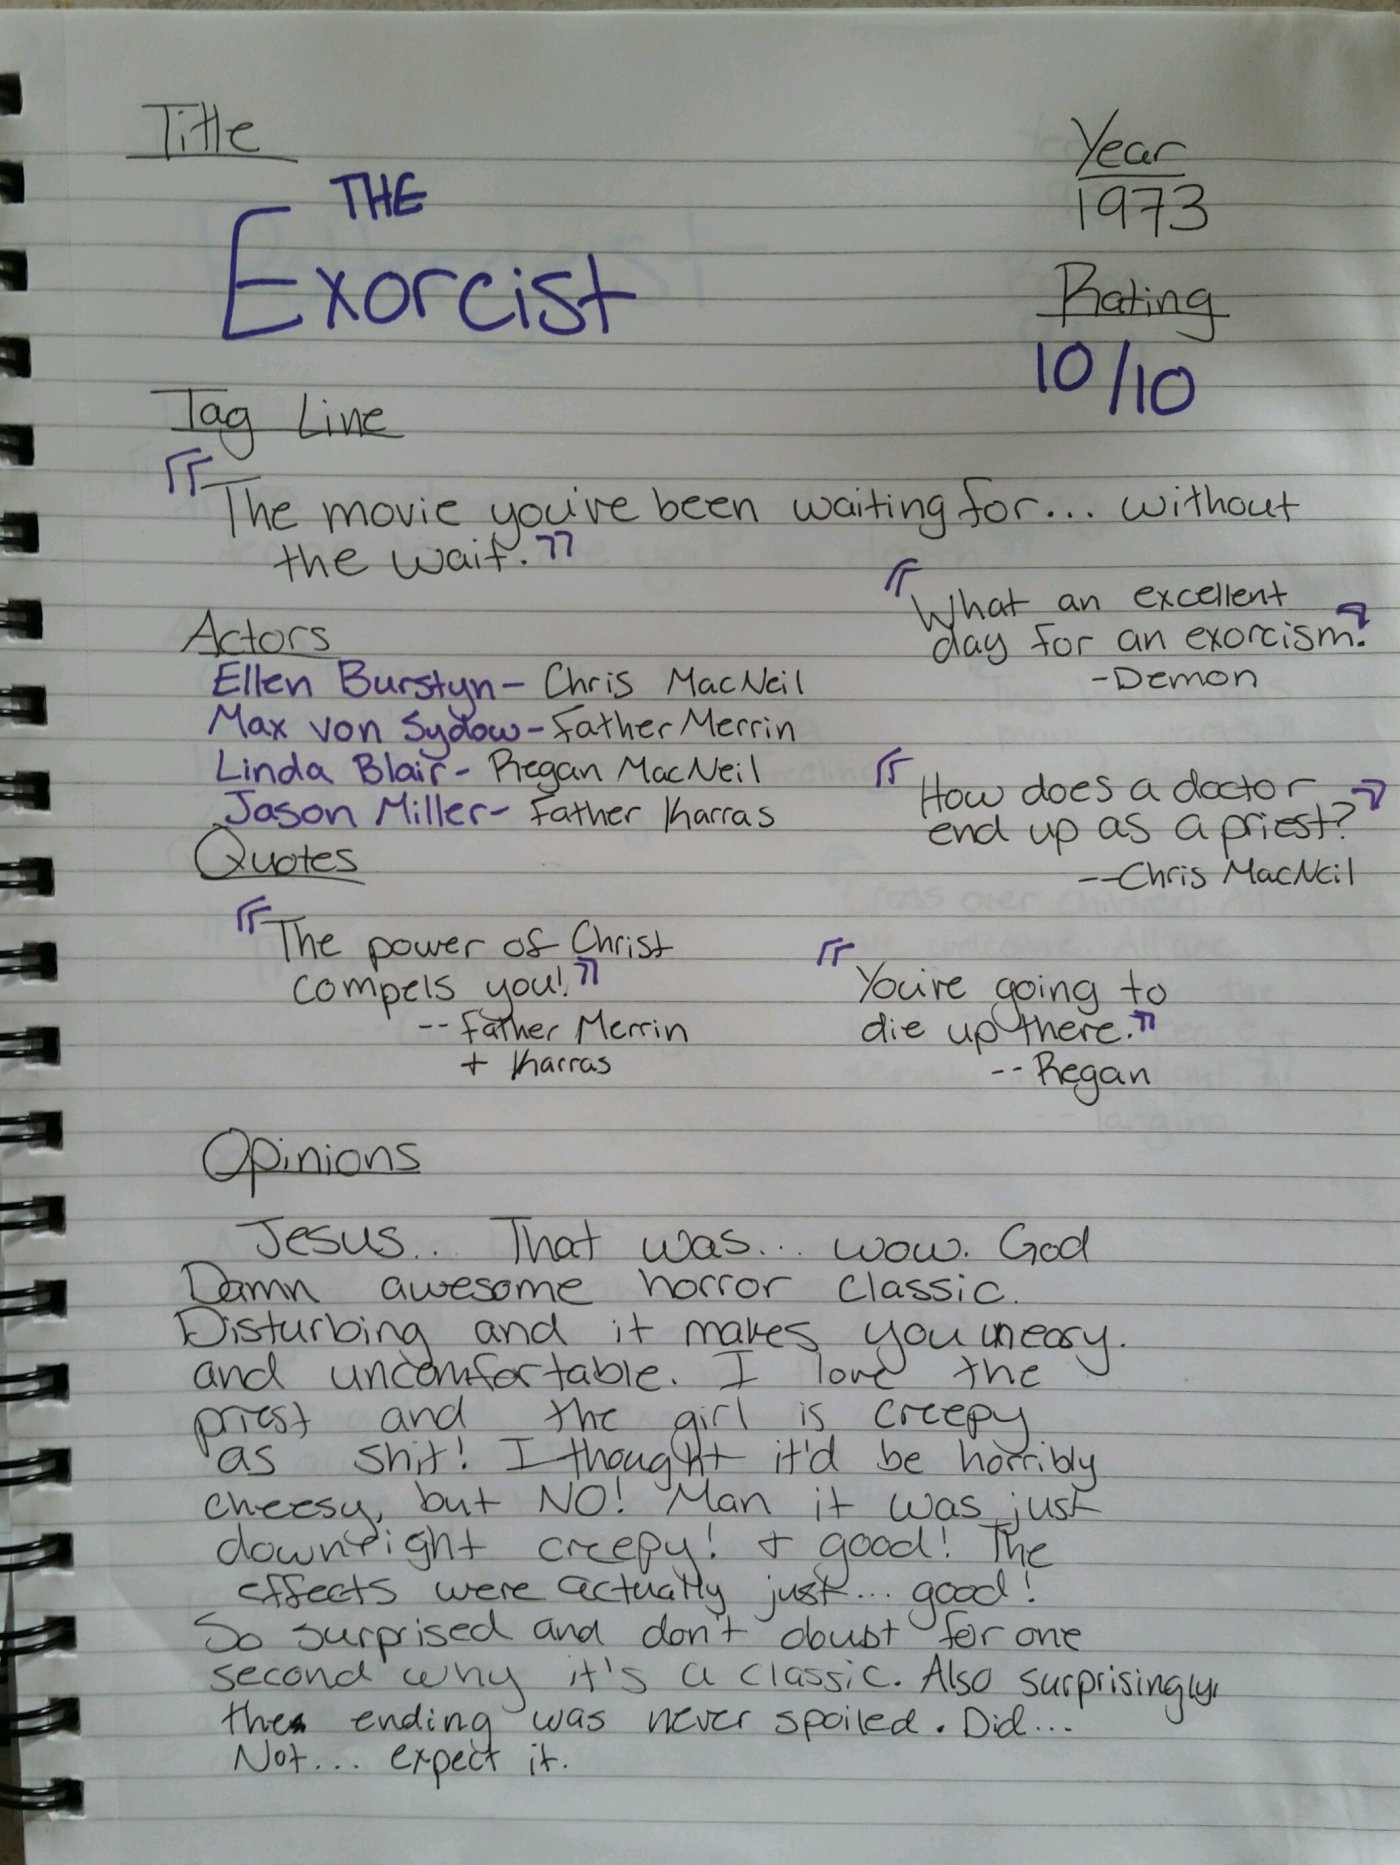 Title
THE
Exorcist
Year
1973
Rating
10/10
Tag Line
"The movie you've been waiting for... without
the wait."
Actors
Ellen Burstyn- Chris MacNeil
Max von Sydow- Father Merrin
Linda Blair- Regan MacNeil
Jason Miller- Father Karras
Quotes
"What an excellent
day for an exorcism."
-Demon
"How does a doctor
end up as a priest?"
--Chris MacNeil
"The power of Christ
compels you!"
--Father Merrin
+ Karras
"You're going to
die up there."
--Regan
Opinions
Jesus... That was... wow. God
Damn awesome horror classic.
Disturbing and it makes you uneasy.
and uncomfortable. I love the
priest and the girl is creepy
as shit! I thought it'd be horribly
cheesy, but NO! Man it was just
downright creepy! + good! The
effects were actually just... good!
So surprised and don't doubt for one
second why it's a classic. Also surprisingly,
the ending was never spoiled. Did...
Not... expect it.